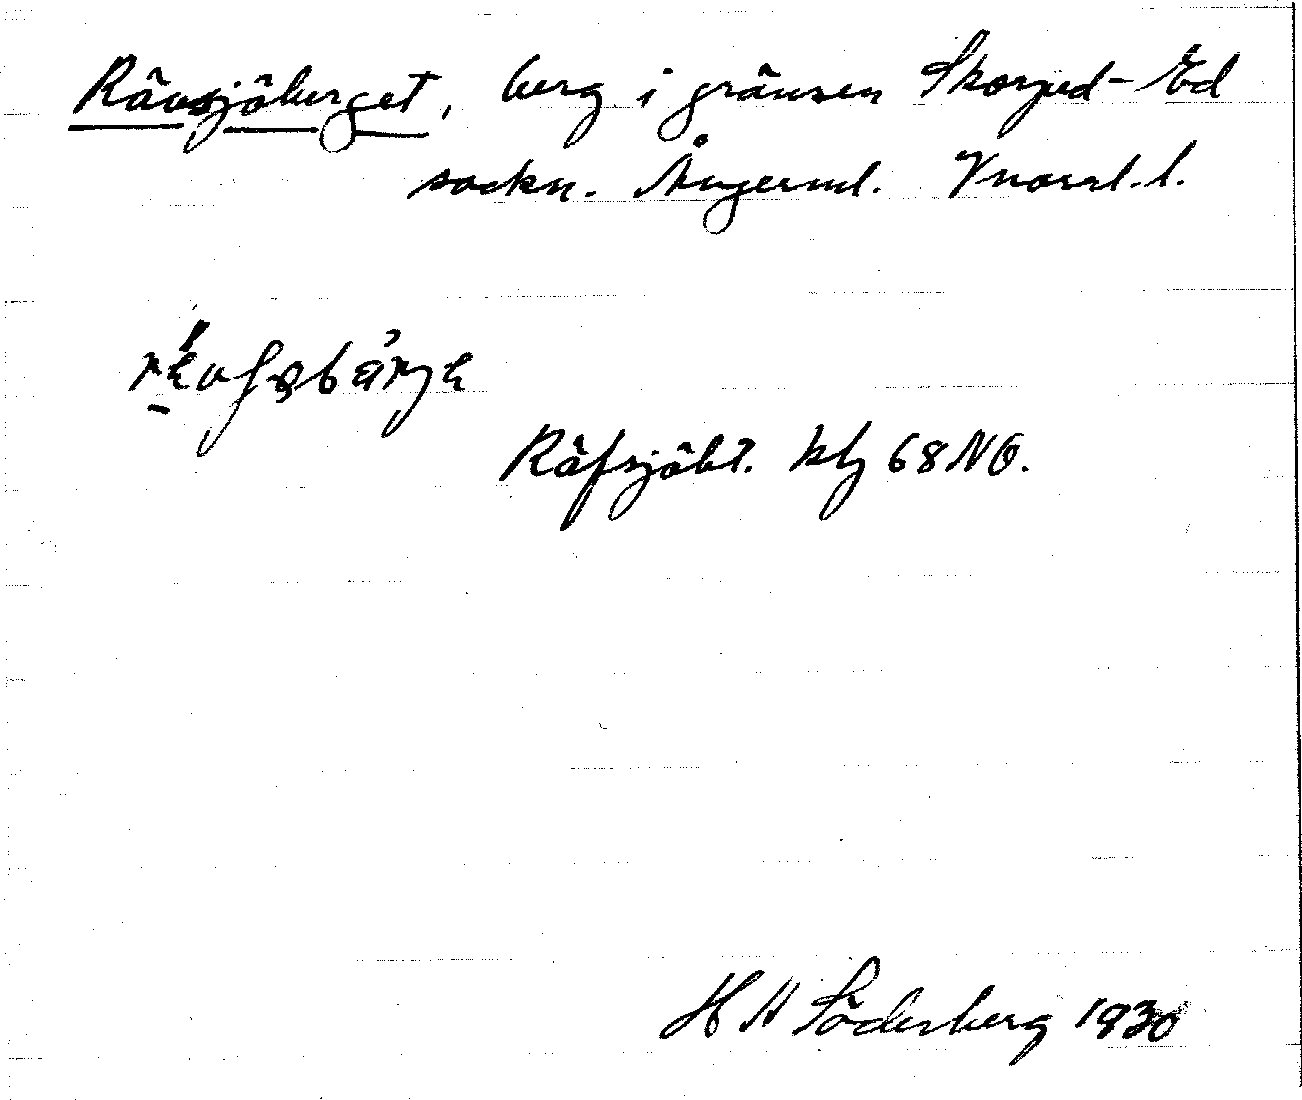 Rävsjöberget, berg i gränsen Skorped-Ed
sockn. Ångerml. Vnorrl. l.
Räfsjöbt. kbl 68 NO.
H H Söderberg 1930